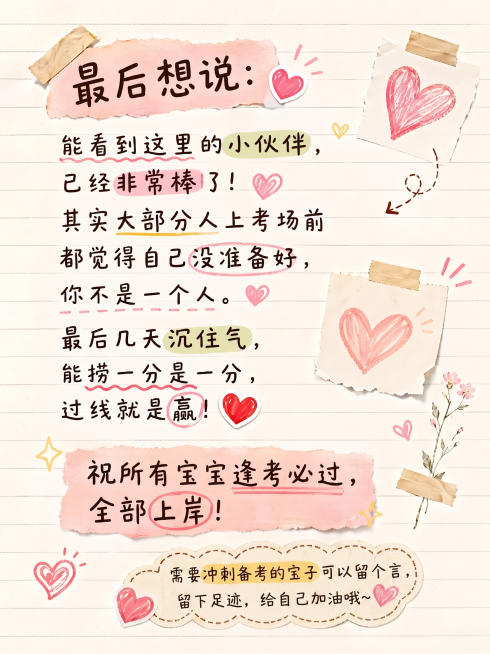 最后想说：
能看到这里的小伙伴，
已经非常棒了！
其实大部分人上考场前
都觉得自己没准备好，
你不是一个人。
最后几天沉住气，
能捞一分是一分，
过线就是赢！
祝所有宝宝逢考必过，
全部上岸！
需要冲刺备考的宝子可以留个言，
留下足迹，给自己加油哦~